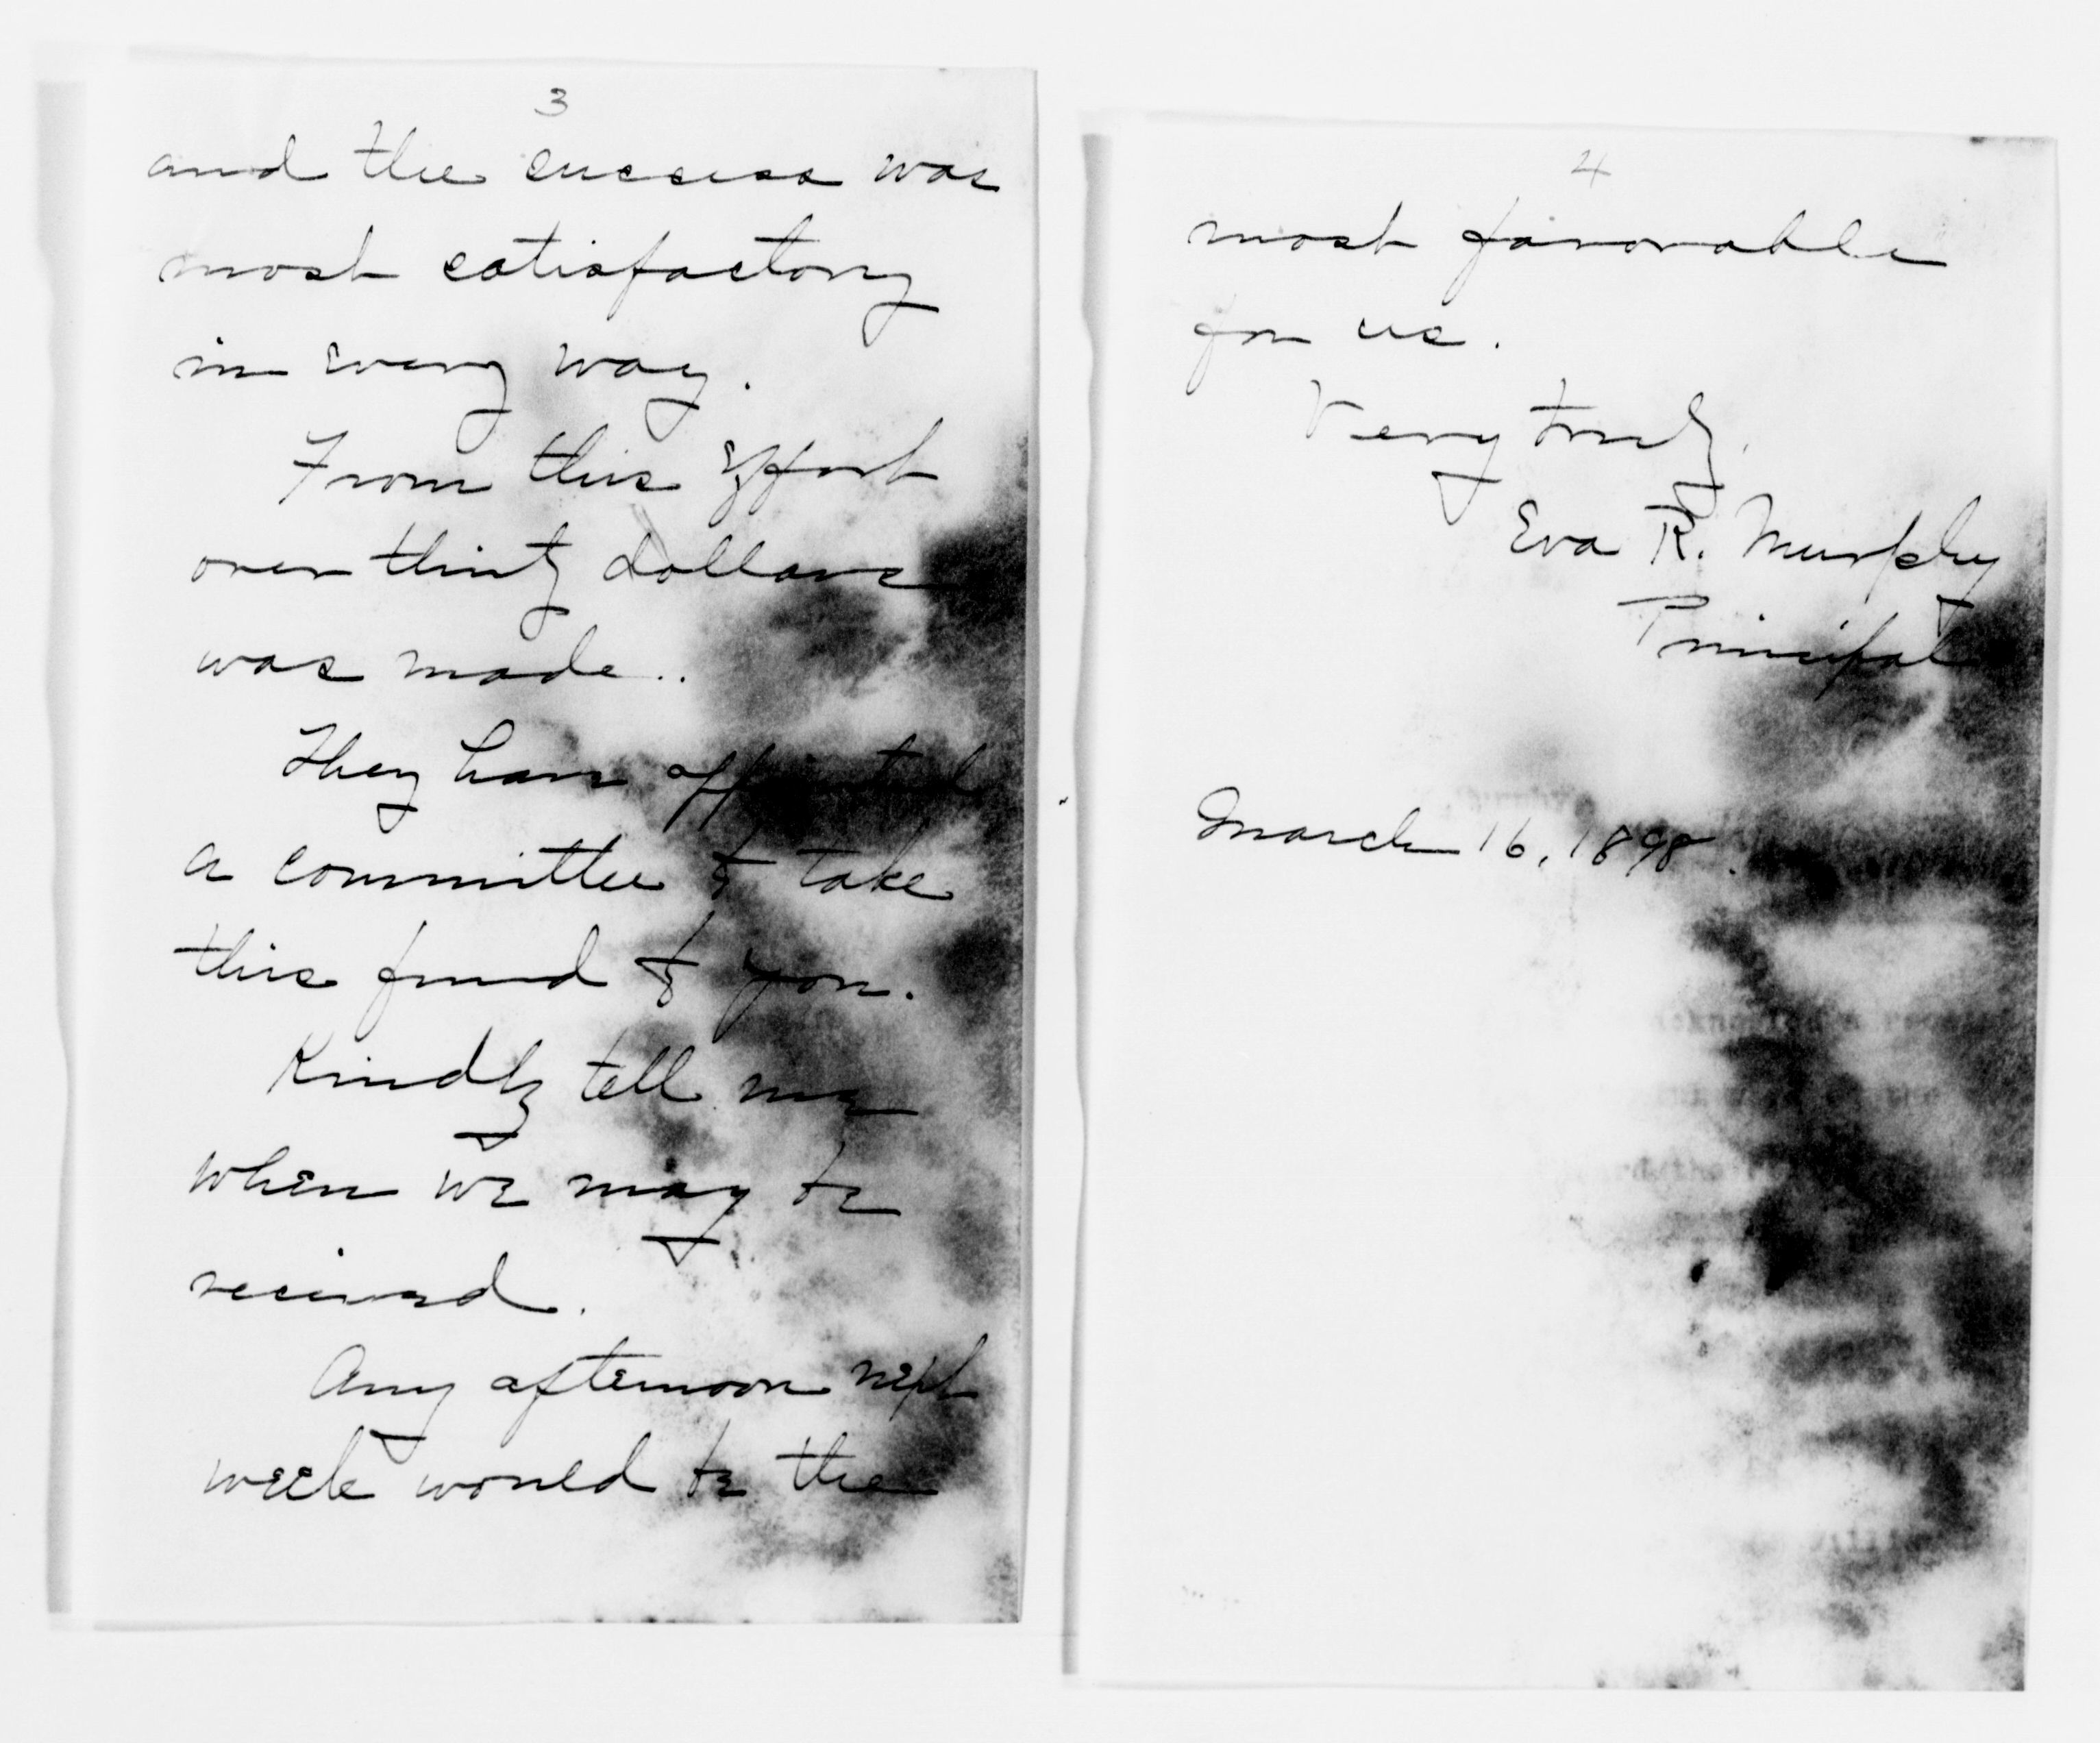 3
and the success was
most satisfactory
in every way.
From this effort
over thirty dollars
was made..
They have appointed
a committee to take
this fund to you.
Kindly tell me
when we may be
received.
Any afternoon next
week would be the
4
most favorable
for us.
Very truly,
Eva R. Murphy
Principal
March 16, 1898.